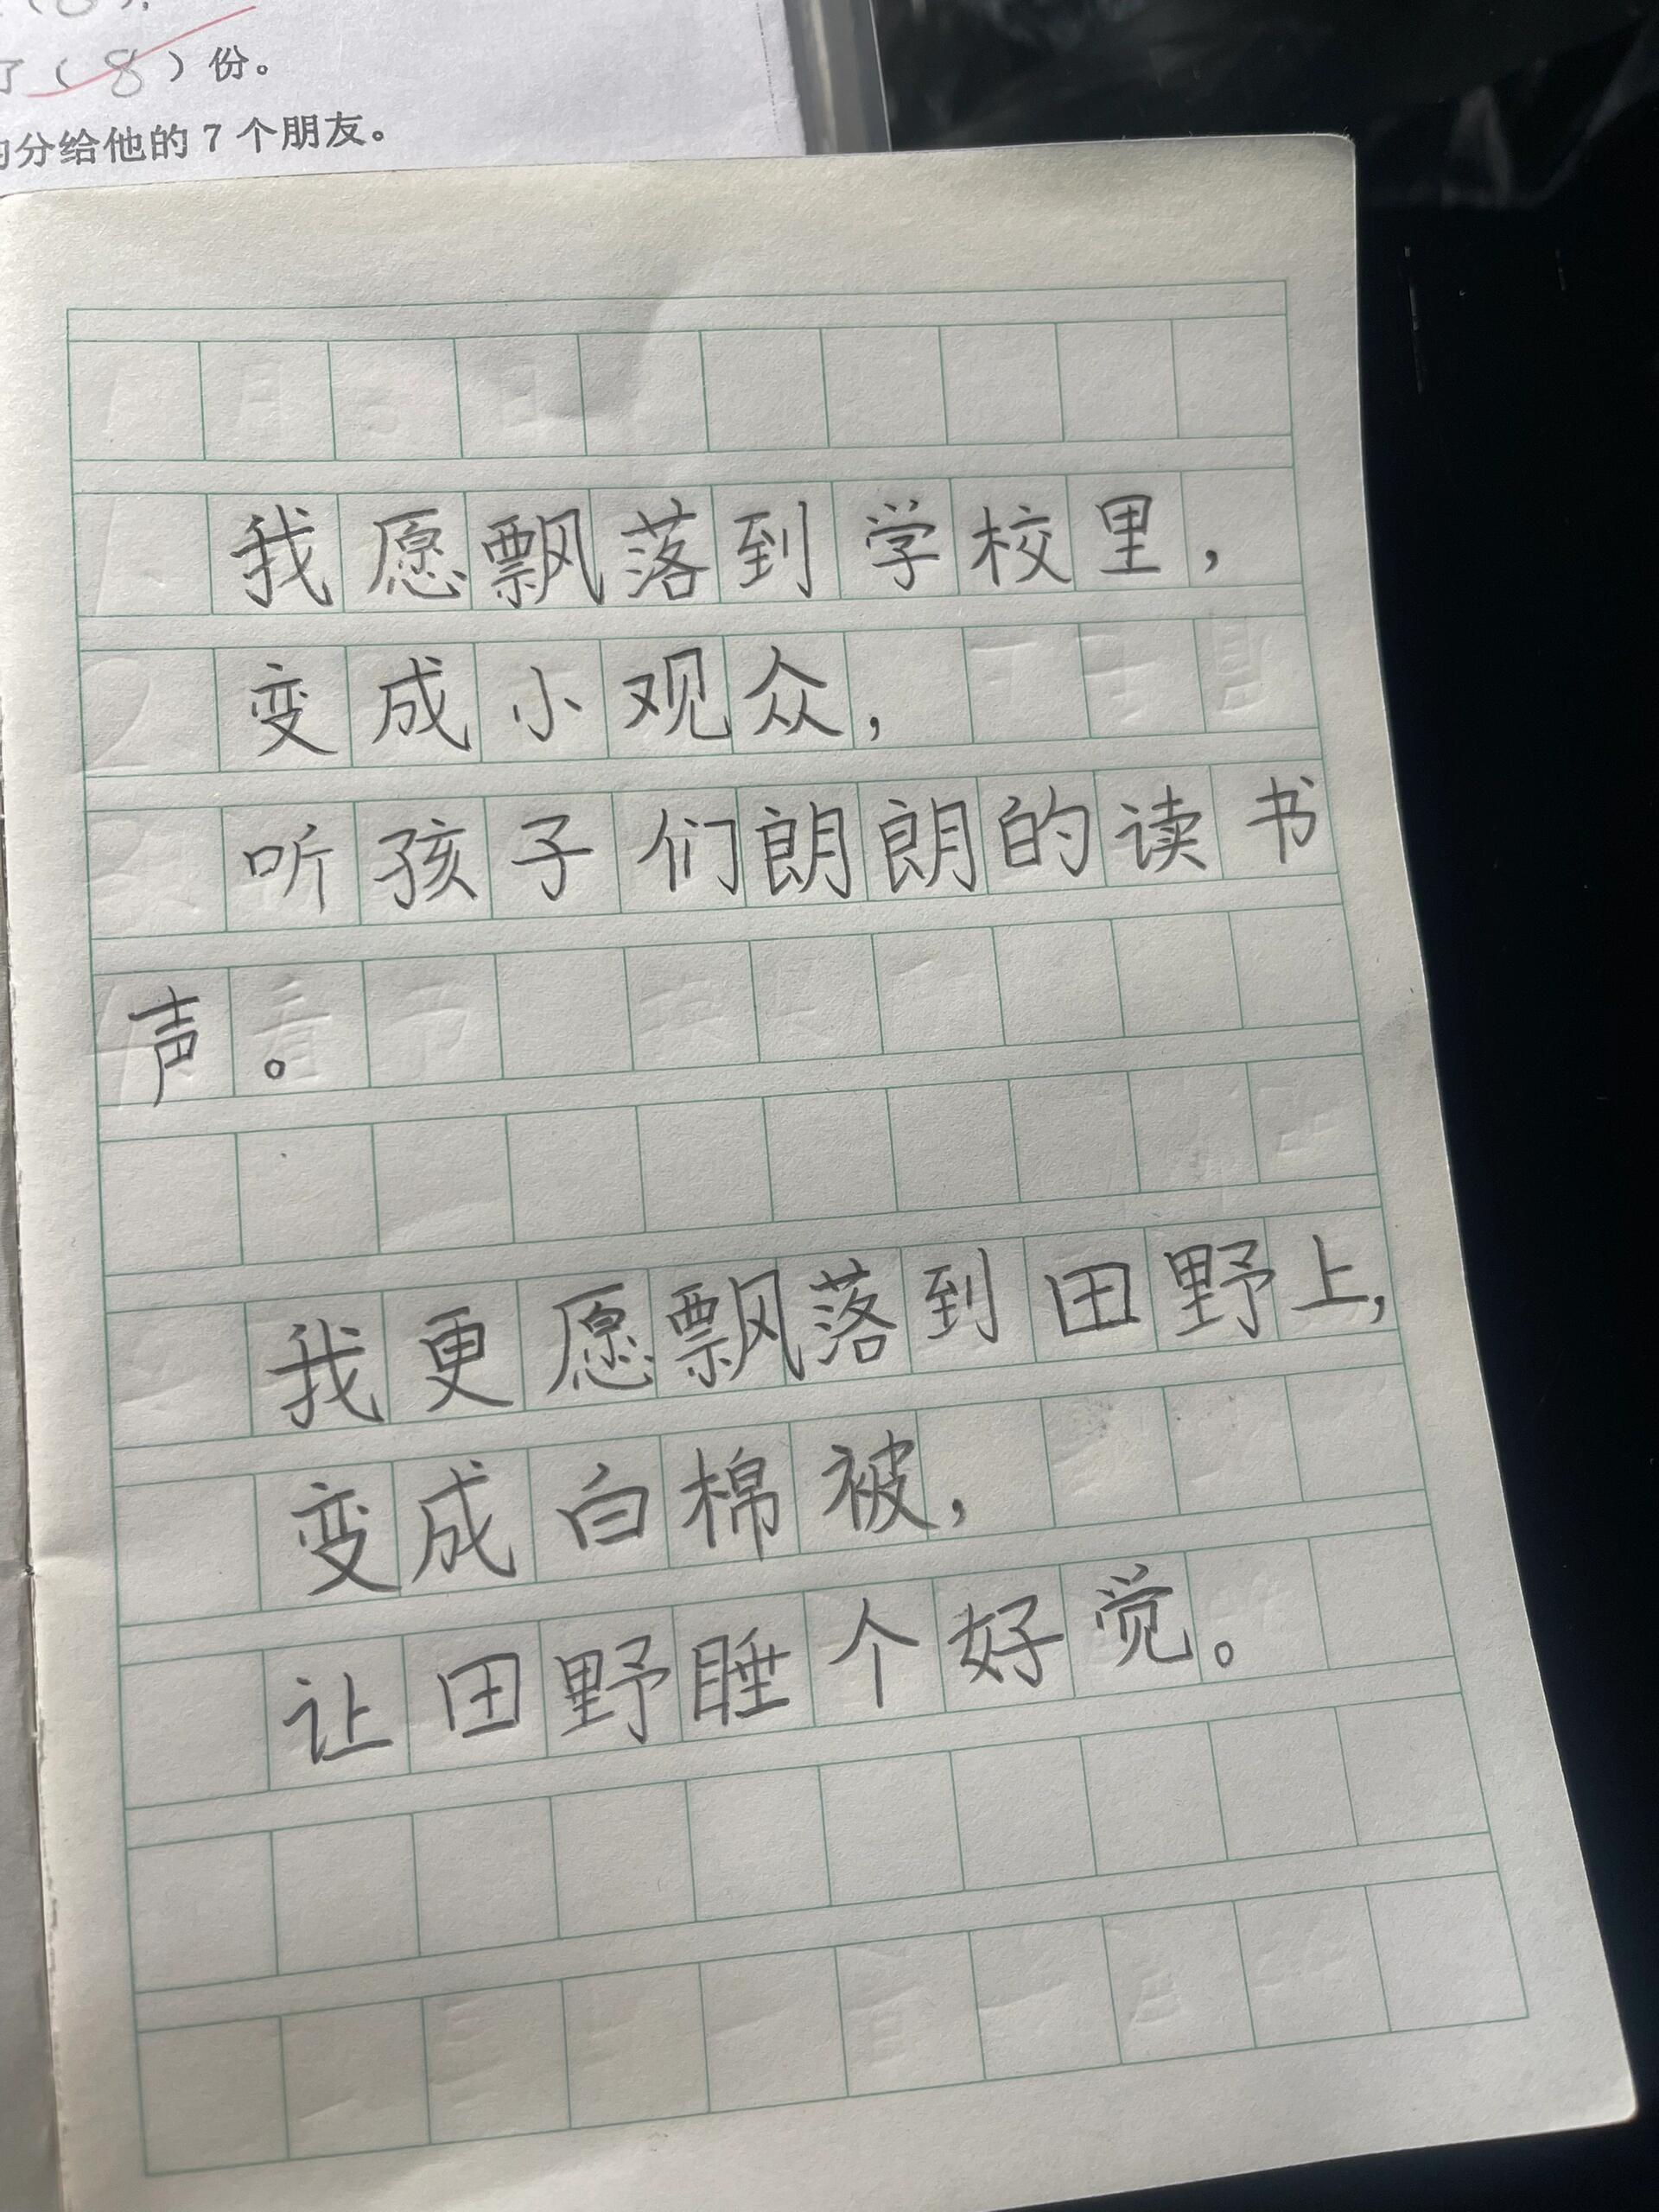 了（8）份。
分给他的7个朋友。
我愿飘落到学校里，
变成小观众，
听孩子们朗朗的读书
声。
我更愿飘落到田野上，
变成白棉被，
让田野睡个好觉。